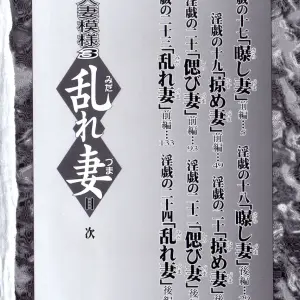 淫戯の十七「曝し妻」前編…5
淫戯の十八「曝し妻」後編…
淫戯の十九「掠め妻」前編…49
淫戯の二十「掠め妻」後
淫戯の二十一「偲び妻」前編…93
淫戯の二十二「偲び妻」後編…
淫戯の二十三「乱れ妻」前編…133
淫戯の二十四「乱れ妻」後編
人妻模様3
乱れ妻
みだ
つま
目次